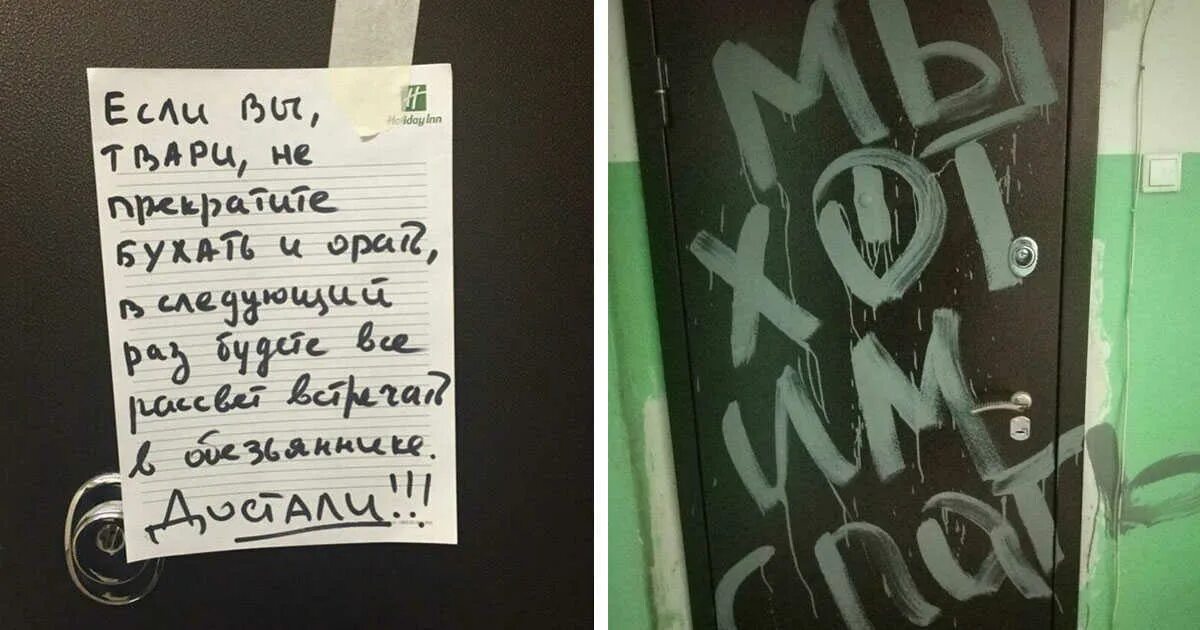 Если вы,
твари, не
прекратите
бухать и орать,
в следующий
раз будете все
рассвет встречать
в обезьяннике.
Достали!!!
Holiday Inn
МЫ
ХОТ
ИМ
СПАТЬ